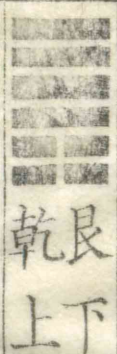 艮下
乾上